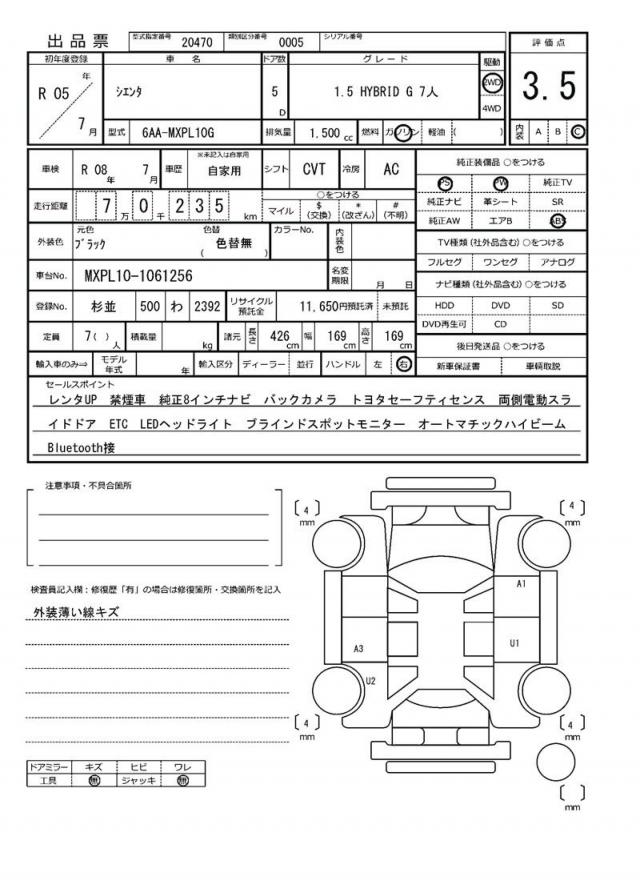 出品票 型式指定番号 20470 類別区分番号 0005 シリアル番号
初年度登録 車名 ドア数 グレード 駆動 評価点
R 05 年 7 月 シエンタ 5 D 1.5 HYBRID G 7人 2WD 4WD 3.5
型式 6AA-MXPL10G 排気量 1.500 cc 燃料 ガソリン 軽油 ( ) 内装 A B C
車検 R 08 年 7 月 車歴 ※未記入は自家用 自家用 シフト CVT 冷房 AC 純正装備品 ○をつける
PS PW 純正TV
走行距離 7 万 0 千 2 3 5 km ○をつける
マイル $ (交換) * (改ざん) # (不明)
純正ナビ 革シート SR
純正AW エアB ABS
外装色 元色 ブラック 色替 ( 色替無 ) カラーNo. 内装色
TV種類 (社外品含む) ○をつける
フルセグ ワンセグ アナログ
車台No. MXPL10-1061256 名変期限 月 日
ナビ種類 (社外品含む) ○をつける
登録No. 杉並 500 わ 2392 リサイクル預託金 11,650円預託済 未預託
HDD DVD SD
DVD再生可 CD
定員 7( ) 人 積載量 kg 諸元 長さ 426 cm 幅 169 cm 高さ 169 cm
後日発送品 ○をつける
輸入車のみ⇒ モデル年式 年 輸入区分 ディーラー 並行 ハンドル 左 右
新車保証書 車輌取説
セールスポイント
レンタUP 禁煙車 純正8インチナビ バックカメラ トヨタセーフティセンス 両側電動スラ
イドドア ETC LEDヘッドライト ブラインドスポットモニター オートマチックハイビーム
Bluetooth接
注意事項・不具合箇所
検査員記入欄：修復歴「有」の場合は修復箇所・交換箇所を記入
外装薄い線キズ
ドアミラー キズ ヒビ ワレ
工具 無 ジャッキ 無
[ 4 ] mm
[ 4 ] mm
A1
A3
U1
U2
[ 4 ] mm
[ 4 ] mm
[ ] mm